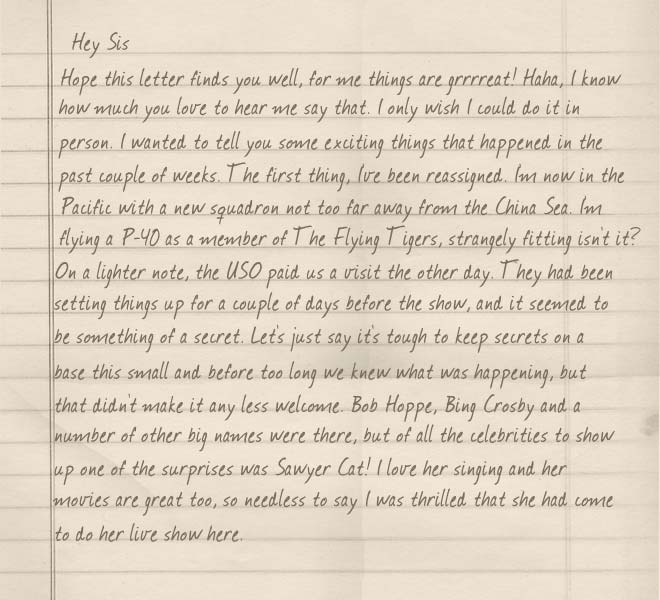 Hey Sis
Hope this letter finds you well, for me things are grrrreat! Haha, I know
how much you love to hear me say that. I only wish I could do it in
person. I wanted to tell you some exciting things that happened in the
past couple of weeks. The first thing, I've been reassigned. I'm now in the
Pacific with a new squadron not too far away from the China Sea. I'm
flying a P-40 as a member of The Flying Tigers, strangely fitting isn't it?
On a lighter note, the USO paid us a visit the other day. They had been
setting things up for a couple of days before the show, and it seemed to
be something of a secret. Let's just say it's tough to keep secrets on a
base this small and before too long we knew what was happening, but
that didn't make it any less welcome. Bob Hoppe, Bing Crosby and a
number of other big names were there, but of all the celebrities to show
up one of the surprises was Sawyer Cat! I love her singing and her
movies are great too, so needless to say I was thrilled that she had come
to do her live show here.